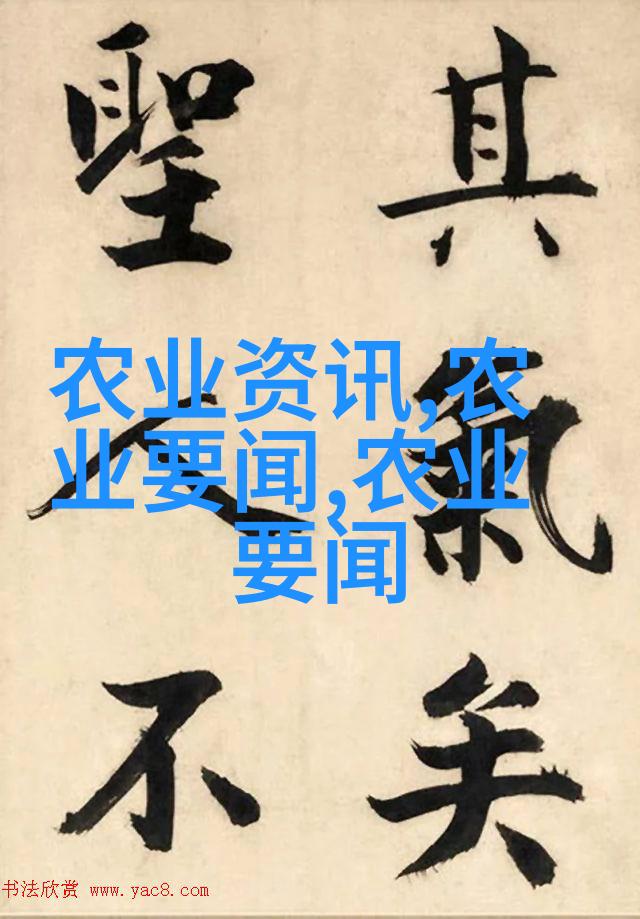 其氣矣
聖人不
农业资讯,农
业要闻,农业
要闻
书法欣赏 www.yac8.com